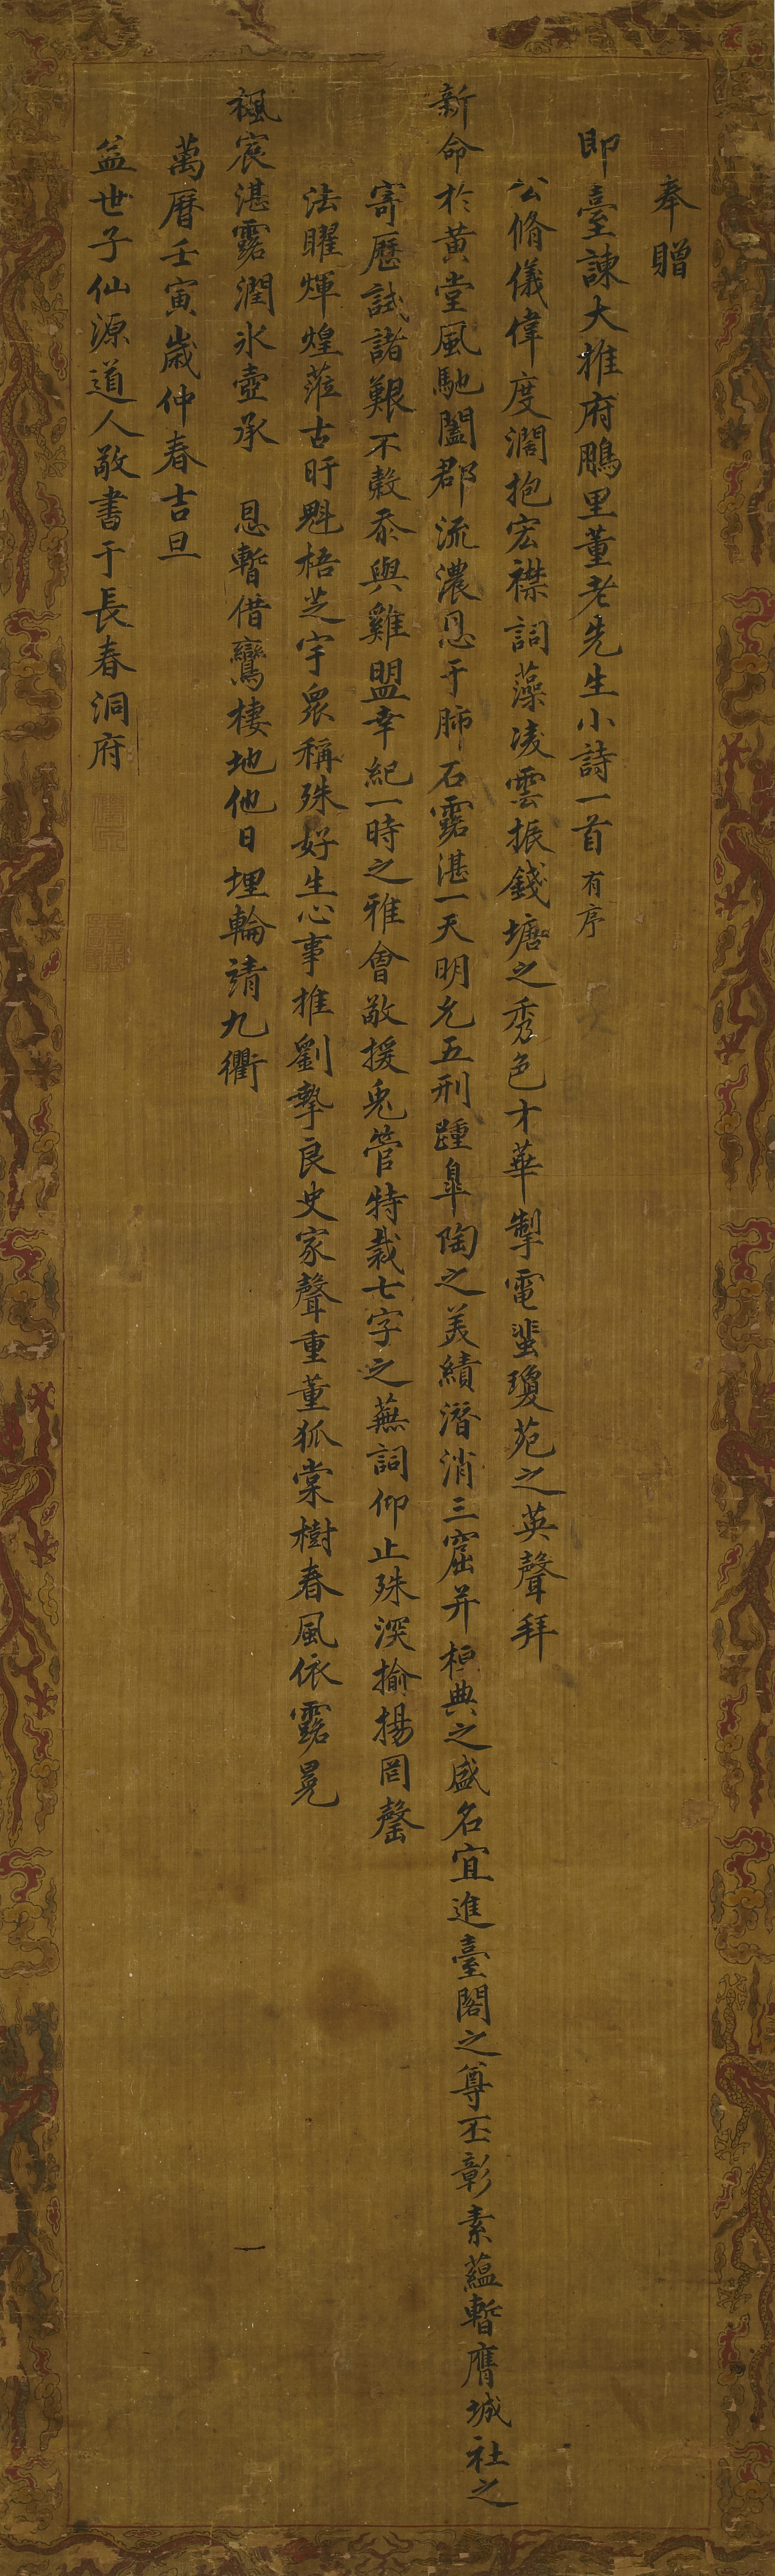 奉贈
即臺諫大推府鵬里董老先生小詩一首有序
公脩儀偉度濶抱宏襟詞藻凌雲振錢塘之秀色才華掣電蜚瓊苑之英聲拜
新命於黃堂風馳闔郡流濃恩于肺石露湛一天明允五刑踵臯陶之美績潛消三窟并桓典之盛名宜進臺閣之尊丕彰素蘊暫膺城社之
寄歷試諸艱不穀忝與雞盟幸紀一時之雅會敬援兎管特裁七字之蕪詞仰止殊深揄揚罔罄
法曜煇煌蒞古盱魁梧芝宇衆稱殊好生心事推劉摯良史家聲重董狐棠樹春風依露冕
楓宸湛露潤氷壺承 恩暫借鸞棲地他日埋輪靖九衢
萬曆壬寅歲仲春吉旦
益世子仙源道人敬書于長春洞府